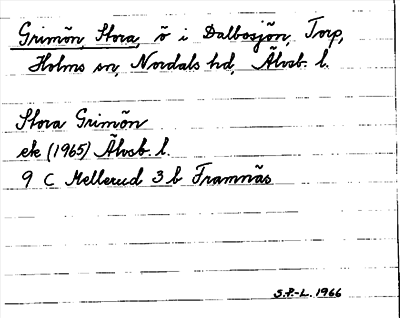 Grimön, Stora, ö i Dalbosjön, Torp,
Holms sn, Nordals hd, Älvsb. l.
Stora Grimön
ek (1965) Älvsb. l.
9 C Mellerud 3 b Framnäs
S.P.-L. 1966